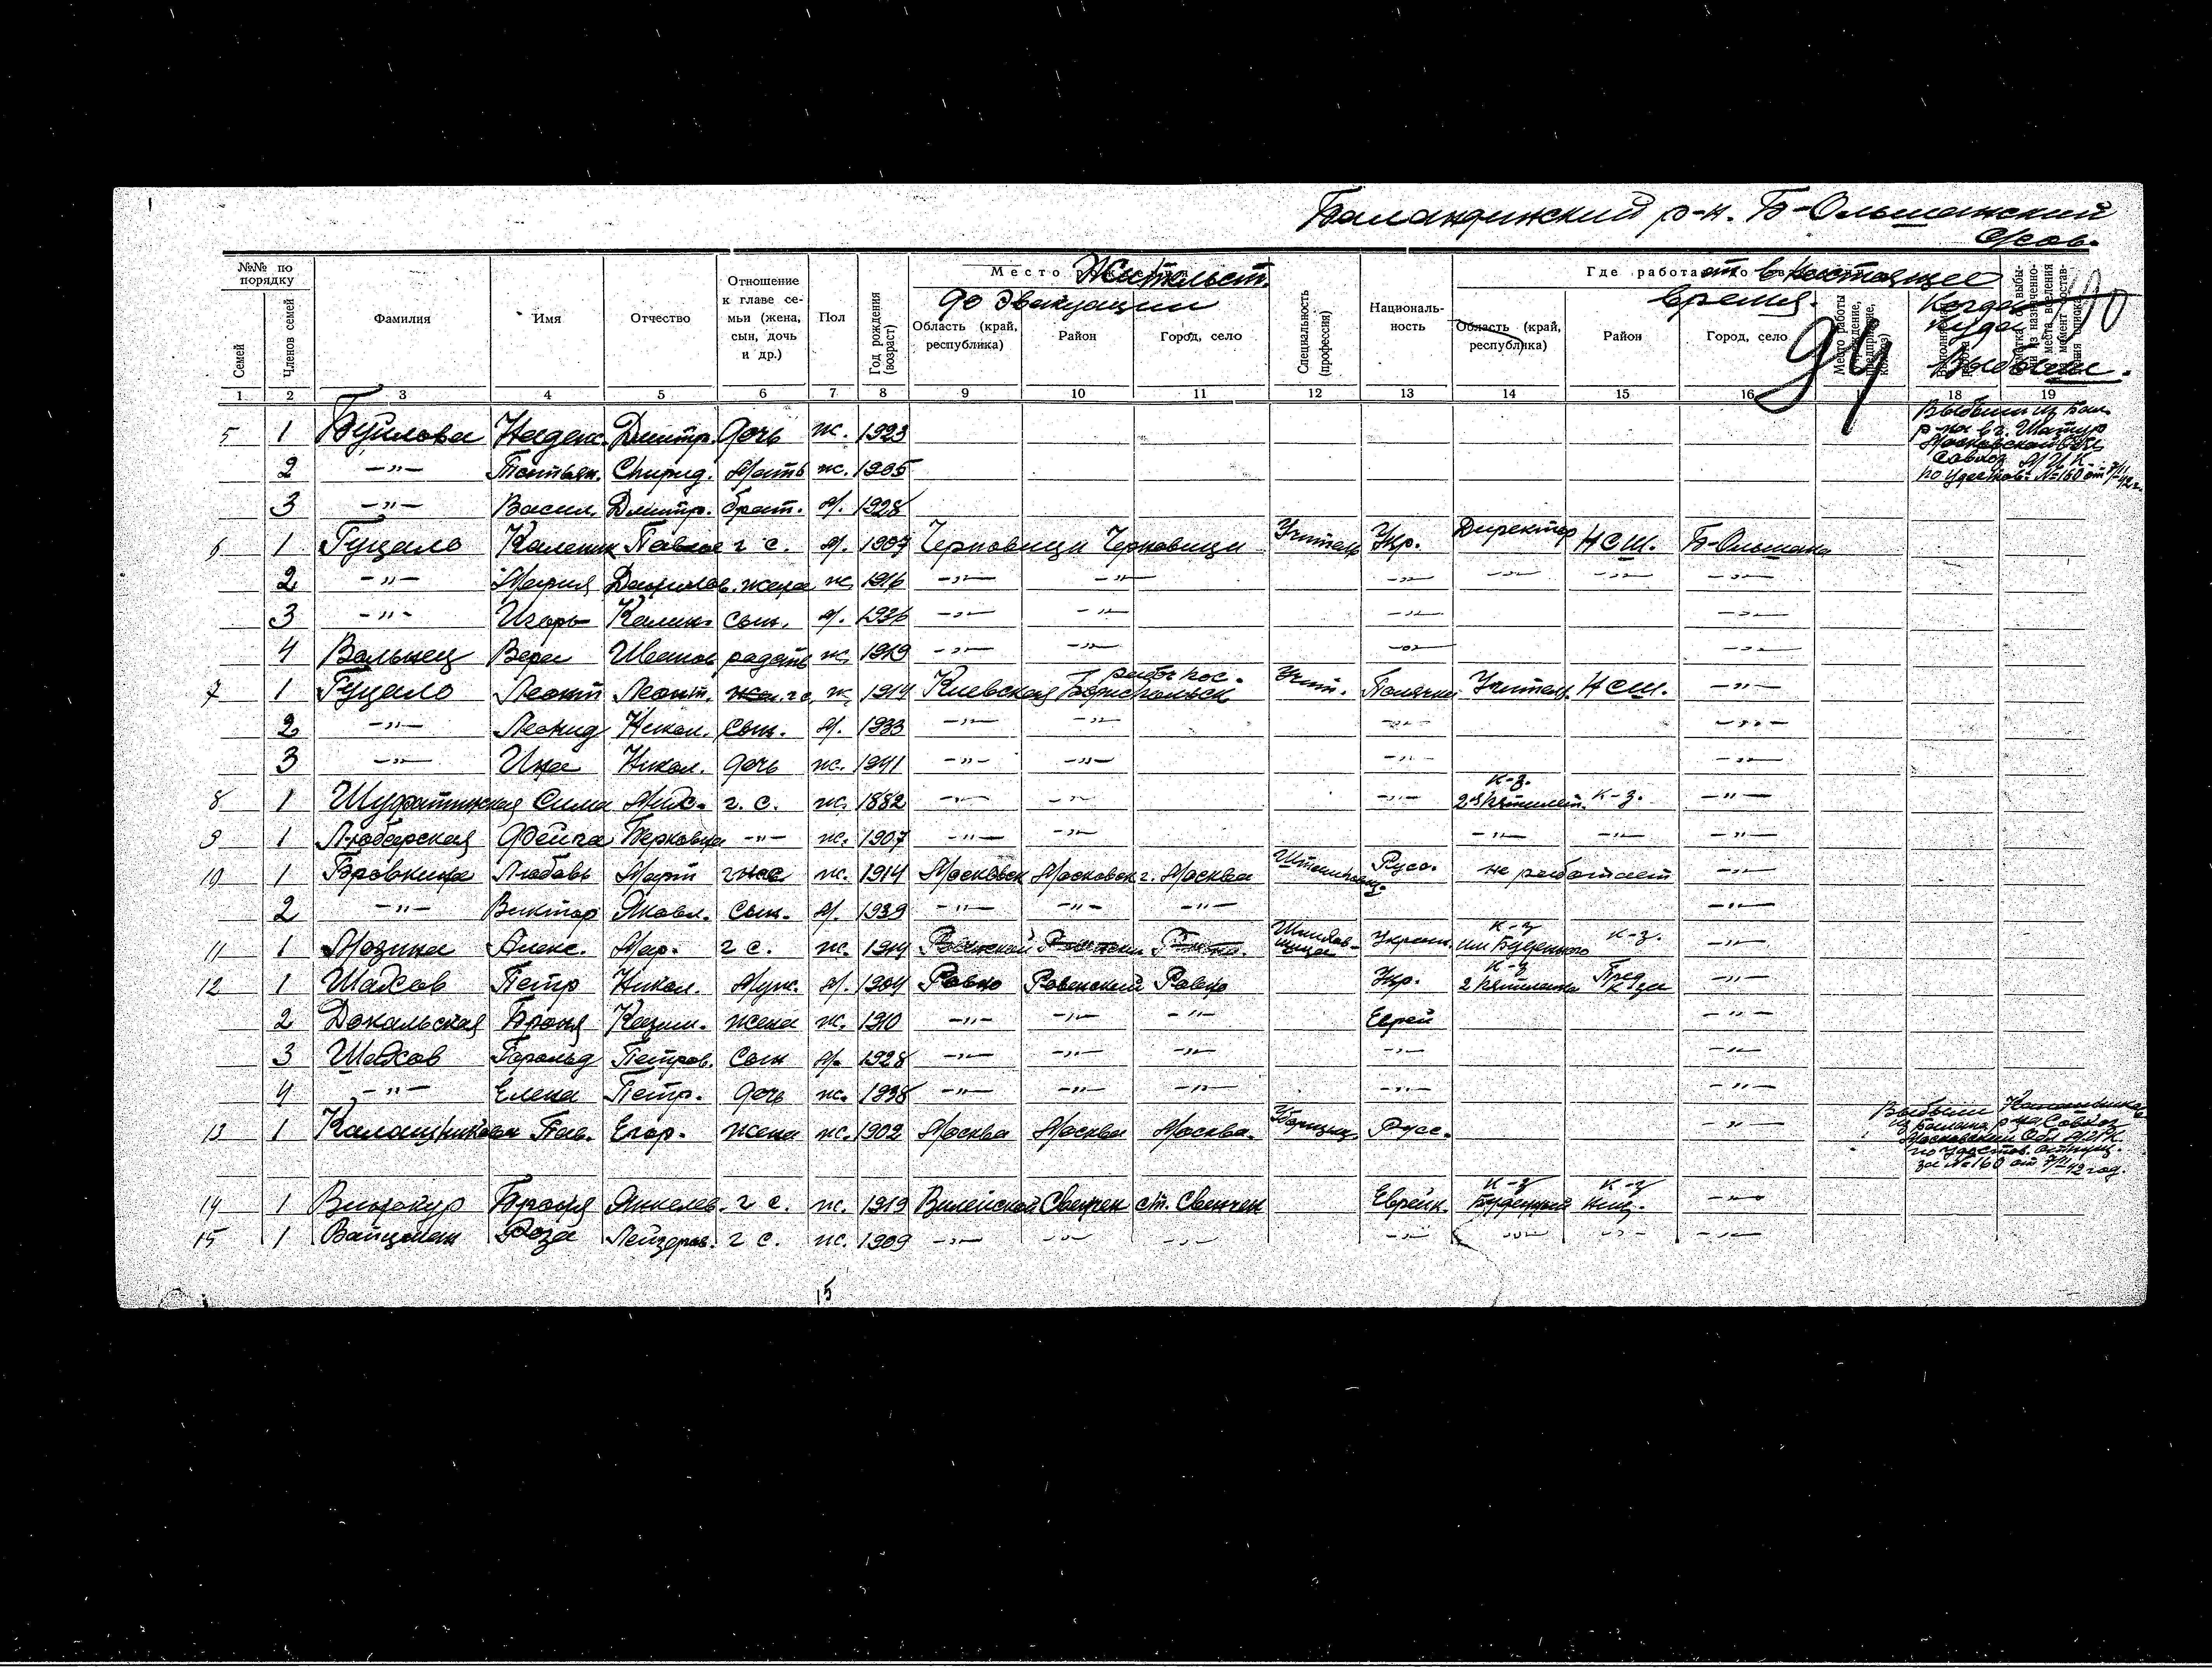 Баландинский р-н. Б-Ольшанский
с/сов.
№№ по порядку
Семей
Членов семей
Фамилия
Имя
Отчество
Отношение к главе семьи (жена, сын, дочь и др.)
Пол
Год рождения (возраст)
Место Жительст.
до эвакуации
Область (край, республика)
Район
Город, село
Специальность (профессия)
Националь-ность
Где работает в настоящее
время.
Область (край, республика)
Район
Город, село
Место работы
Когда
куда
выбыли.
94
1 2 3 4 5 6 7 8 9 10 11 12 13 14 15 16 18 19
5 1 Буйлова Надеж. Дмитр. дочь ж. 1923 Выбыли из Бал. р-на в г. Шатур Московской обл. Совхоз по удостов. №160 от 7/II 42 г.
2 -"- Татьян. Спирид. Мать ж. 1905
3 -"- Васил. Дмитр. брат. М. 1928
6 1 Гуцало Каленик Павлов г с. М. 1907 Черновици Черновици Учитель Укр. Директор НСШ. Б-Ольшанка
2 -"- Мария Данилов. жена ж. 1916 -"- -"- -"- -"- -"- -"-
3 -"- Игорь Калин. сын. М. 1936 -"- -"- -"- -"-
4 Вальнец Вера Иванов ж. 1919 -"- -"- -"- -"-
7 1 Гуцало Леонт. г с. ж. 1914 Киевская Бориспольск Учит. Полячка Учитель. НСШ. -"-
2 -"- Леонид Никол. Сын. М. 1933 -"- -"- -"- -"-
3 -"- Ина Никол. дочь ж. 1941 -"- -"- -"- -"-
8 1 Сима г. с. ж. 1882 -"- -"- -"- к-з. 2я пятилет. к-з. -"-
9 1 Любарская Фейга Берковна -"- ж. 1907 -"- -"- -"- -"- -"-
10 1 Бровкина Любовь Март ж. 1914 Московск Московск г. Москва Русс. не работает -"-
2 -"- Виктор Яковл. Сын. М. 1939 -"- -"- -"- -"-
11 1 Мазина Алекс. Мар. г с. ж. 1914 Украин. к-з им Буденного к-з. -"-
12 1 Петр Никол. Муж. М. 1904 Ровно Ровенский Ровно Укр. к-з 2 пятилетка Пред к-за -"-
2 Докальская Броня Казим. жена ж. 1910 -"- -"- -"- Еврей -"-
3 Гарольд Петров. Сын М. 1928 -"- -"- -"- -"- -"-
4 -"- Елена Петр. дочь ж. 1938 -"- -"- -"- -"- -"-
13 1 Калашникова Пав. Егор. жена ж. 1902 Москва Москва Москва. Русс. -"- Выбыли Московский Обл по удостов. за №160 от 7/II 42 год.
14 1 Винокур Броня Янкелев. г с. ж. 1919 Вилейской Свенчен ст. Свенчен Еврейк. к-з Буденный к-з -"-
15 1 Вайцман Роза Лейзеров. г с. ж. 1909 -"- -"- -"- -"- -"- -"- -"-
15